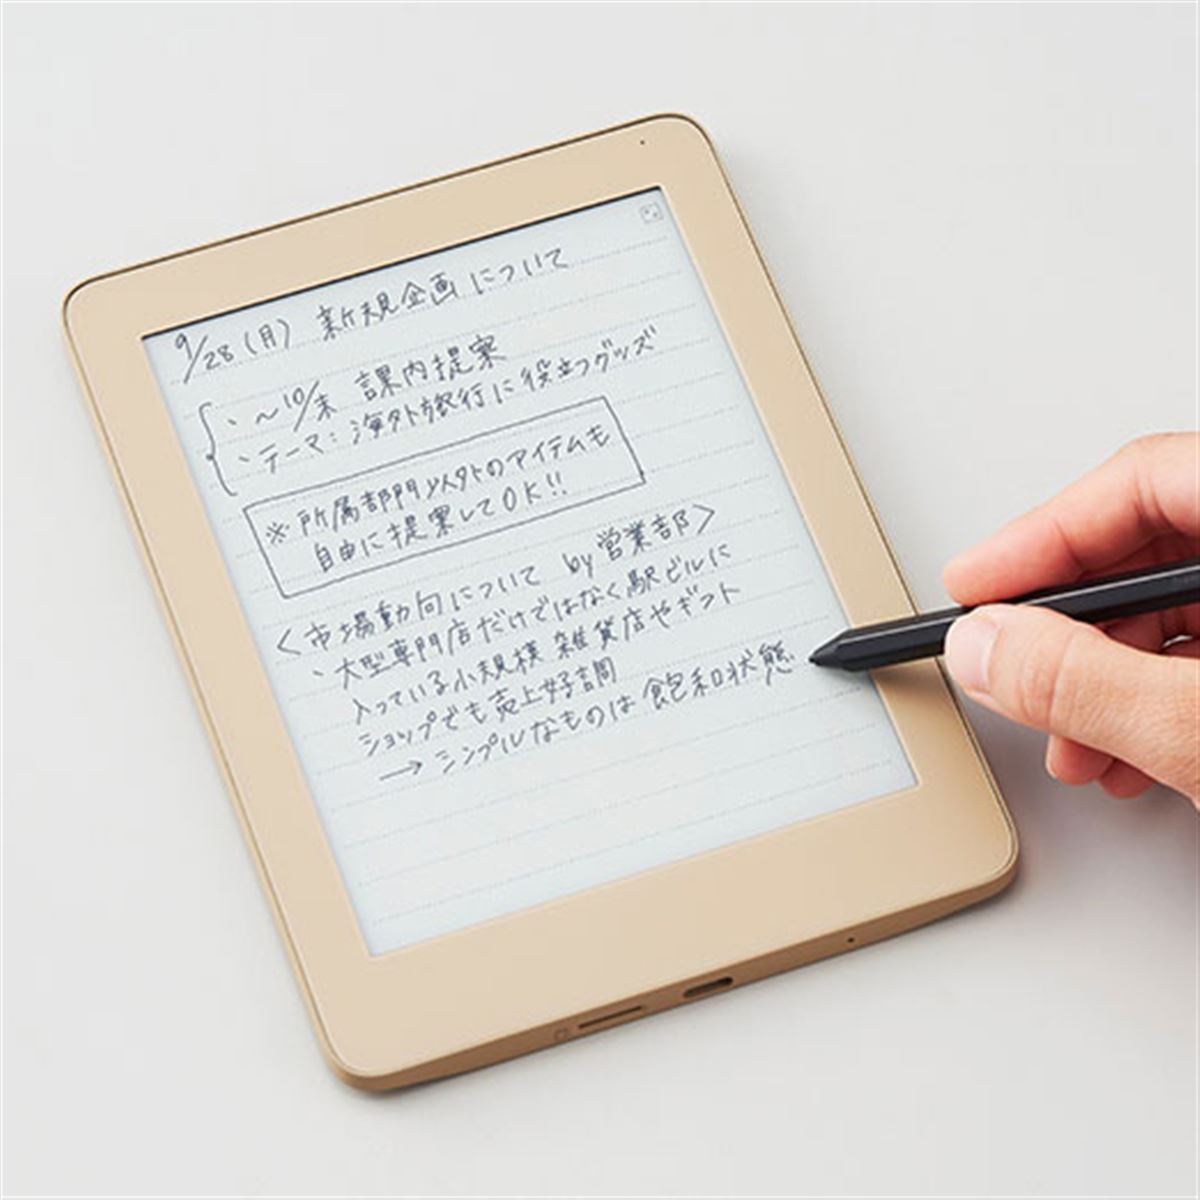 9/28(月) 新規企画について
・〜10/末 課内提案
・テーマ：海外旅行に役立つグッズ
※所属部門以外のアイテムも
自由に提案してOK!!
〈市場動向について by 営業部〉
・大型専門店だけではなく駅ビルに
入っている小規模雑貨店やギフト
ショップでも売上好調
→シンプルなものは飽和状態